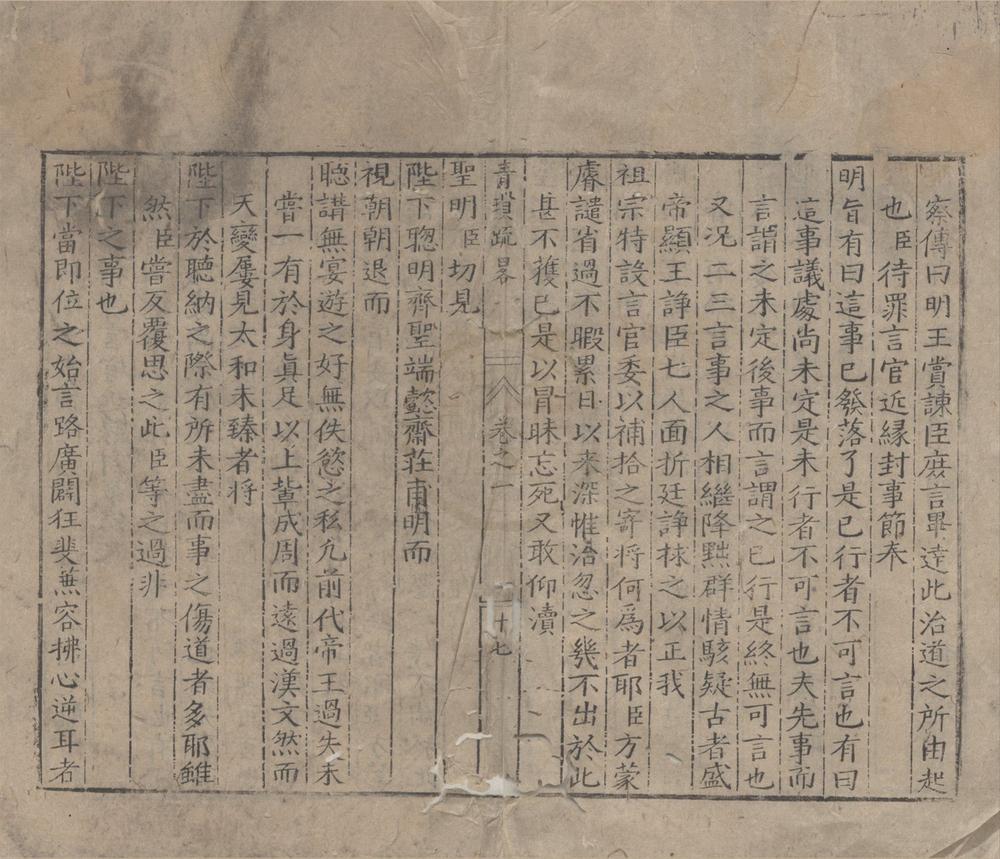 察傳曰明王賞諫臣庶言畢達此治道之所由起
也臣待罪言官近緣封事節奉
明旨有曰這事已發落了是已行者不可言也有曰
這事議處尚未定是未行者不可言也夫先事而
言謂之未定後事而言謂之已行是終無可言也
又况二三言事之人相繼降黜群情駭疑古者盛
帝顯王諍臣七人面折廷諍拂之以正我
祖宗特設言官委以補拾之寄將何爲者耶臣方蒙
譴省過不暇累日以来深惟治忽之幾不出於此
甚不獲已是以冒昧忘死又敢仰瀆
青瑣疏畧 卷之一 十七
聖明臣切見
陛下聦明齊聖端懿齋莊甫明而
視朝朝退而
聽講無宴遊之好無佚慾之私凢前代帝王過失未
嘗一有於身眞足以上軰成周而遠過漢文然而
天變屢見太和未臻者將
陛下於聽納之際有所未盡而事之傷道者多耶雖
然臣嘗反覆思之此臣等之過非
陛下之事也
陛下當即位之始言路廣闢狂斐兼容拂心逆耳者